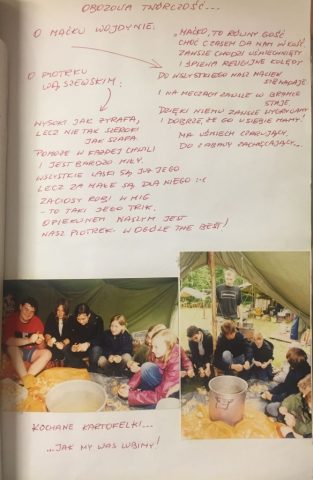 OBOZOWA TWÓRCZOŚĆ...
O MAĆKU WOJDYNIE.
"MAĆKO, TO RÓWNY GOŚĆ
CHOĆ CZASEM DA NAM W KOŚĆ
ZAWSZE CHODZI UŚMIECHNIĘTY
I ŚPIEWA RELIGIJNE KOLĘDY
DO WSZYSTKIEGO NASZ MACIEK
SIĘ NADAJE
I NA MECZACH ZAWSZE W BRAMCE
STAJE.
DZIĘKI NIEMU ZAWSZE WYGRYWAMY
I DOBRZE, ŻE GO U SIEBIE MAMY!
MA UŚMIECH CZARUJĄCY,
DO ZABAWY ZACHĘCAJĄCY...
O PIOTRKU
WĄSZEWSKIM:
WYSOKI JAK ŻYRAFA,
LECZ NIE TAK SZEROKI
JAK SZAFA.
POMOŻE W KAŻDEJ CHWILI
I JEST BARDZO MIŁY.
WSZYSTKIE LASKI SĄ JUŻ JEGO
LECZ ZA MAŁE SĄ DLA NIEGO :-(
ZACIOSY ROBI W MIG
- TO TAKI JEGO TRIK.
OPIEKUNEM NASZYM JEST
NASZ PIOTREK. W OGÓLE THE BEST!
KOCHANE KARTOFELKI...
...JAK MY WAS LUBIMY!